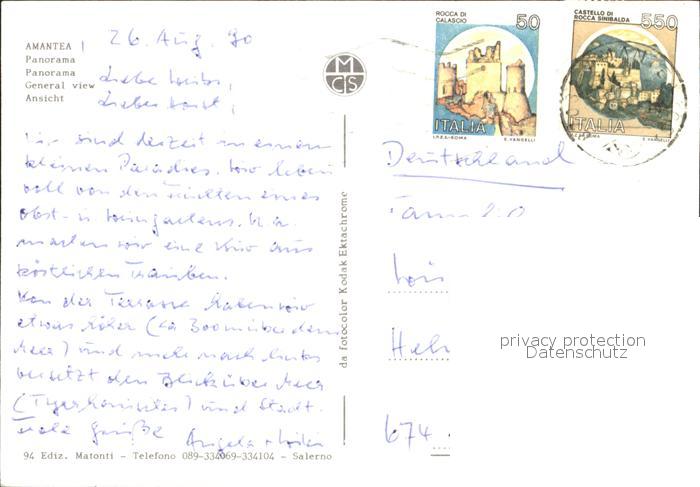 AMANTEA
Panorama
Panorama
General view
Ansicht
26. Aug. 90
Liebe
Lieber
wir sind derzeit in einem
kleinen Paradies. Wir leben
voll von den Früchten eines
Obst- u. Weingartens. U. a.
machen wir eine Kur aus
köstlichen Trauben.
Von der Terrasse haben wir
etwas höher (ca 200 m über dem
Meer) und mehr nach hinten
versetzt den Blick über Meer
(Tyrrhenisches) und Stadt.
Viele Grüße Angela +
94 Ediz. Matonti - Telefono 089-334069-334104 - Salerno
da fotocolor Kodak Ektachrome
MCS
ROCCA DI CALASCIO 50
ITALIA
I.P.Z.S.-ROMA E. VANGELLI
CASTELLO DI ROCCA SINIBALDA 550
ITALIA
ROMA E. VANGELLI
Deutschland
674
privacy protection
Datenschutz